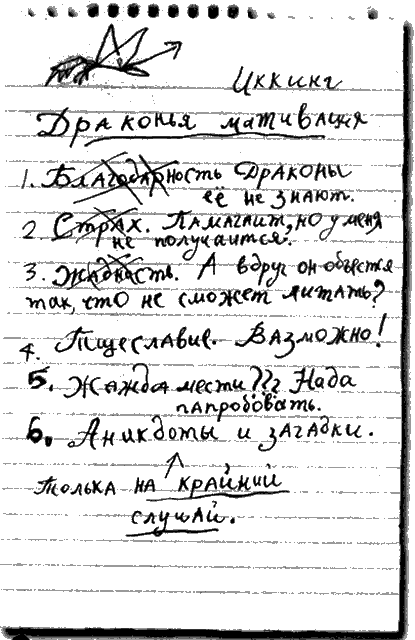 Иккинг
Драконья мативация
1. Благодарность Драконы
её не знают.
2 Страх. Памагаит, но у меня
не получаится.
3. Жадность. А вдруг он объестся
так, что не сможет литать?
4. Тщеславие. Вазможно!
5. Жажда мести??? Нада
папробовать.
6. Аникдоты и загадки.
Толька на крайний
случай.